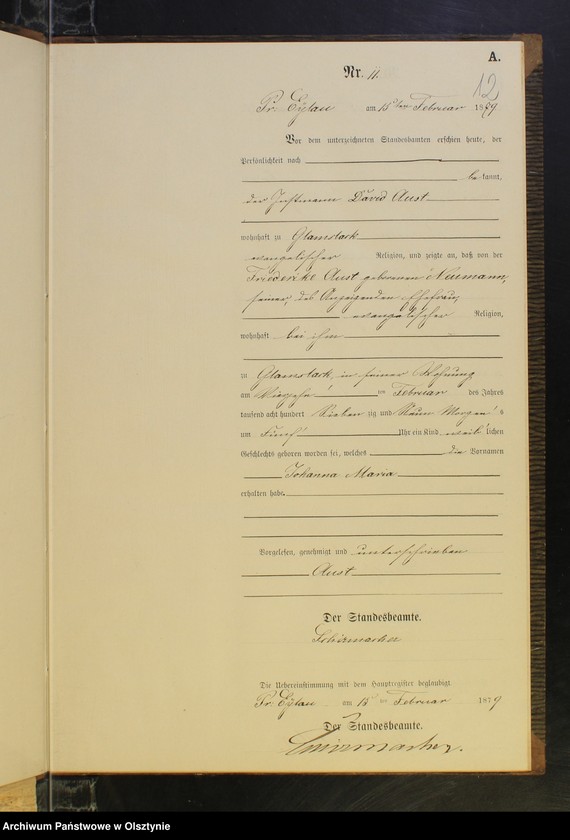 A.
Nr. 11.
12
Pr. Eylau am 15ten Februar 1879
Vor dem unterzeichneten Standesbeamten erschien heute, der
Persönlichkeit nach
be kannt,
der Instmann David Aust
wohnhaft zu Glamslack
evangelischer Religion, und zeigte an, daß von der
Friederike Aust geborenen Neumann,
seiner, des Anzeigenden Ehefrau,
evangelischer Religion,
wohnhaft bei ihm
zu Glamslack, in seiner Wohnung
am Vierzehn ten Februar des Jahres
tausend acht hundert Sieben zig und Neun Morgen s
um Fünf Uhr ein Kind weib lichen
Geschlechts geboren worden sei, welches die Vornamen
Johanna Maria
erhalten habe.
Vorgelesen, genehmigt und unterschrieben
Aust
Der Standesbeamte.
Schirmacher
Die Uebereinstimmung mit dem Hauptregister beglaubigt.
Pr. Eylau am 15ten Februar 1879
Der Standesbeamte.
Schirmacher.
Archiwum Państwowe w Olsztynie